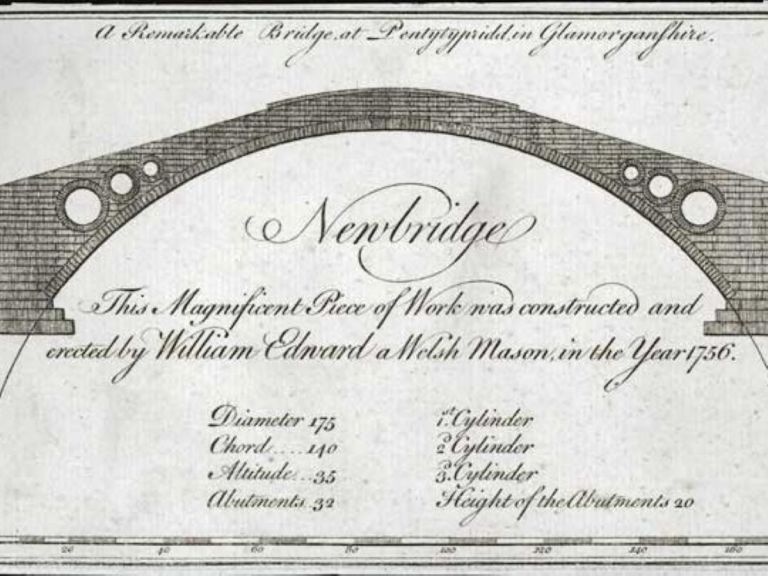 A Remarkable Bridge, at Pentytypridd, in Glamorganshire.
Newbridge
This Magnificent Piece of Work was constructed and
erected by William Edward a Welsh Mason, in the Year 1756.
Diameter 175 1st. Cylinder
Chord.....140 2d Cylinder
Altitude...35 3d. Cylinder
Abutments 32 Height of the Abutments 20
20 40 60 80 100 120 140 160